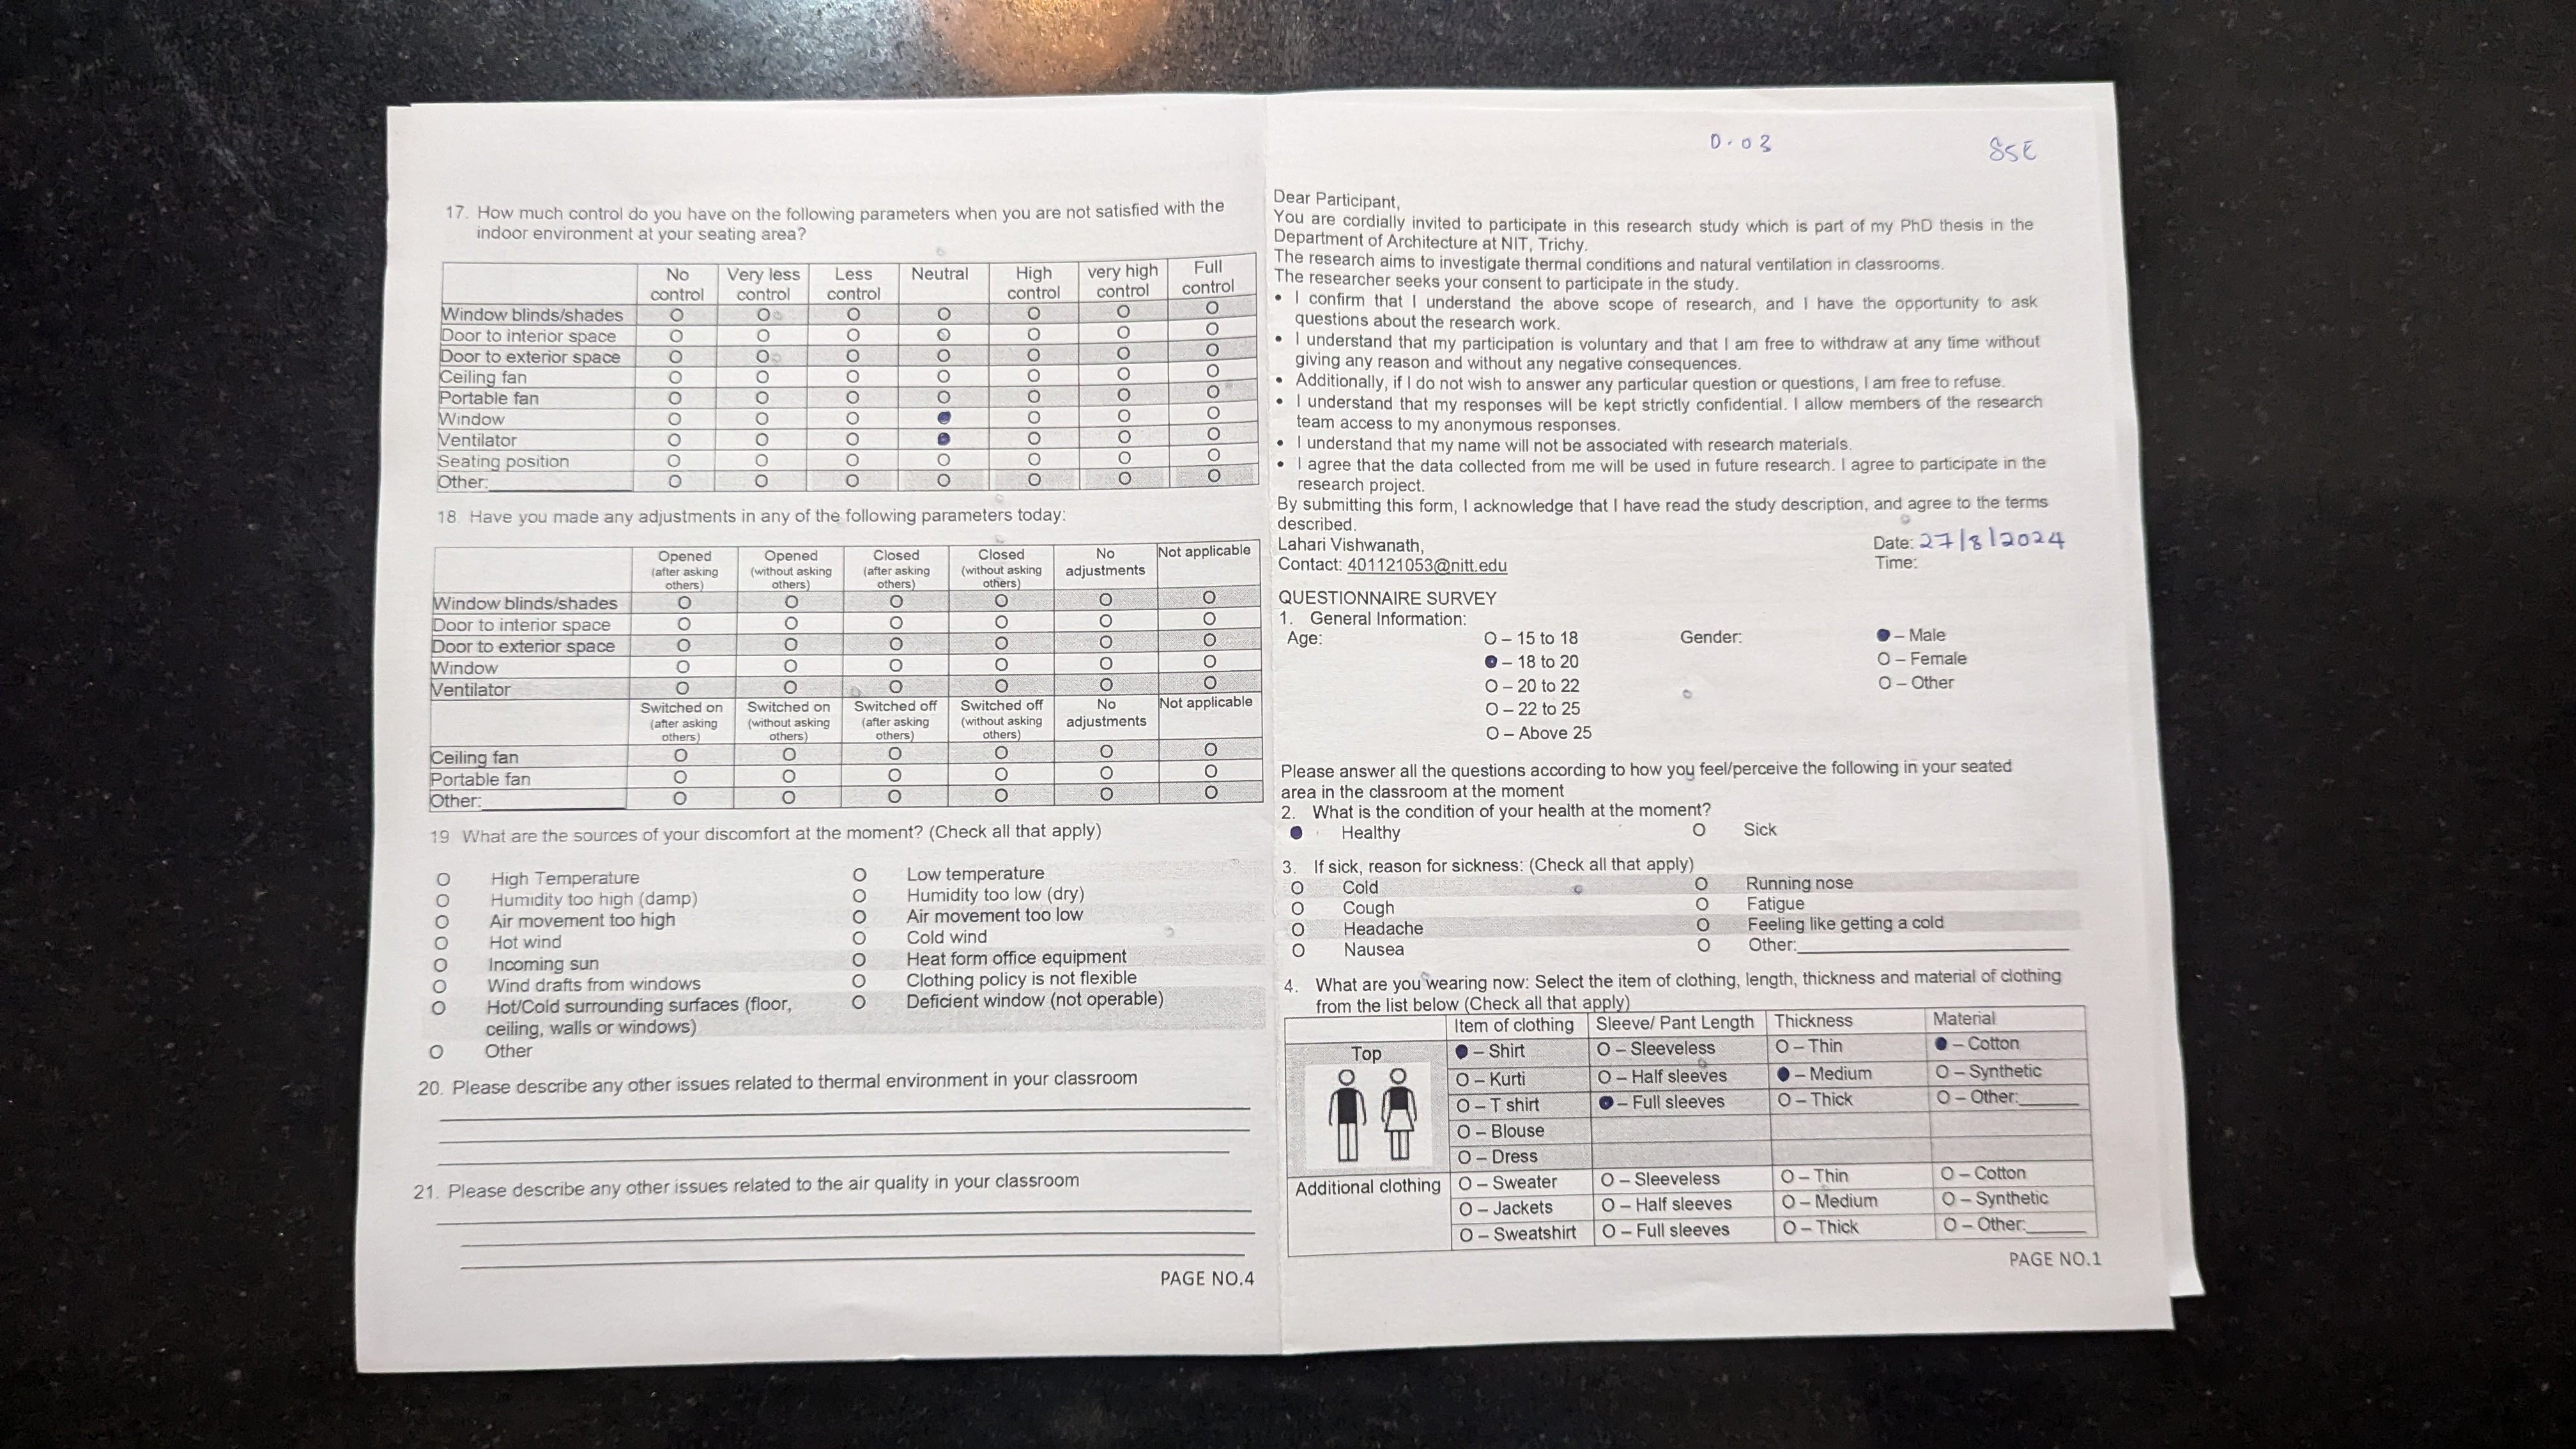 17. How much control do you have on the following parameters when you are not satisfied with the
indoor environment at your seating area?
No control Very less control Less control Neutral High control very high control Full control
Window blinds/shades O O O O O O O
Door to interior space O O O O O O O
Door to exterior space O O O O O O O
Ceiling fan O O O O O O O
Portable fan O O O O O O O
Window O O O ● O O O
Ventilator O O O ● O O O
Seating position O O O O O O O
Other:________ O O O O O O O
18. Have you made any adjustments in any of the following parameters today:
Opened (after asking others) Opened (without asking others) Closed (after asking others) Closed (without asking others) No adjustments Not applicable
Window blinds/shades O O O O O O
Door to interior space O O O O O O
Door to exterior space O O O O O O
Window O O O O O O
Ventilator O O O O O O
Switched on (after asking others) Switched on (without asking others) Switched off (after asking others) Switched off (without asking others) No adjustments Not applicable
Ceiling fan O O O O O O
Portable fan O O O O O O
Other:________ O O O O O O
19 What are the sources of your discomfort at the moment? (Check all that apply)
O High Temperature O Low temperature
O Humidity too high (damp) O Humidity too low (dry)
O Air movement too high O Air movement too low
O Hot wind O Cold wind
O Incoming sun O Heat form office equipment
O Wind drafts from windows O Clothing policy is not flexible
O Hot/Cold surrounding surfaces (floor, O Deficient window (not operable)
ceiling, walls or windows)
O Other
20. Please describe any other issues related to thermal environment in your classroom
21. Please describe any other issues related to the air quality in your classroom
PAGE NO.4
D.03 SSE
Dear Participant,
You are cordially invited to participate in this research study which is part of my PhD thesis in the
Department of Architecture at NIT, Trichy.
The research aims to investigate thermal conditions and natural ventilation in classrooms.
The researcher seeks your consent to participate in the study.
• I confirm that I understand the above scope of research, and I have the opportunity to ask
questions about the research work.
• I understand that my participation is voluntary and that I am free to withdraw at any time without
giving any reason and without any negative consequences.
• Additionally, if I do not wish to answer any particular question or questions, I am free to refuse.
• I understand that my responses will be kept strictly confidential. I allow members of the research
team access to my anonymous responses.
• I understand that my name will not be associated with research materials.
• I agree that the data collected from me will be used in future research. I agree to participate in the
research project.
By submitting this form, I acknowledge that I have read the study description, and agree to the terms
described.
Lahari Vishwanath, Date: 27/8/2024
Contact: 401121053@nitt.edu Time:
QUESTIONNAIRE SURVEY
1. General Information:
Age: O – 15 to 18 Gender: ● – Male
● – 18 to 20 O – Female
O – 20 to 22 O – Other
O – 22 to 25
O – Above 25
Please answer all the questions according to how you feel/perceive the following in your seated
area in the classroom at the moment
2. What is the condition of your health at the moment?
● Healthy O Sick
3. If sick, reason for sickness: (Check all that apply)
O Cold O Running nose
O Cough O Fatigue
O Headache O Feeling like getting a cold
O Nausea O Other:________
4. What are you wearing now: Select the item of clothing, length, thickness and material of clothing
from the list below (Check all that apply)
Item of clothing Sleeve/ Pant Length Thickness Material
Top ● – Shirt O – Sleeveless O – Thin ● – Cotton
O – Kurti O – Half sleeves ● – Medium O – Synthetic
O – T shirt ● – Full sleeves O – Thick O – Other:______
O – Blouse
O – Dress
Additional clothing O – Sweater O – Sleeveless O – Thin O – Cotton
O – Jackets O – Half sleeves O – Medium O – Synthetic
O – Sweatshirt O – Full sleeves O – Thick O – Other:______
PAGE NO.1